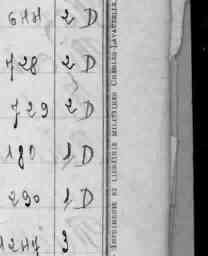 644 2 D
728 2 D
729 2 D
180 1 D
290 1 D
1244 3
IMPRIMERIE ET LIBRAIRIE MILITAIRES CHARLES-LAVAUZELLE